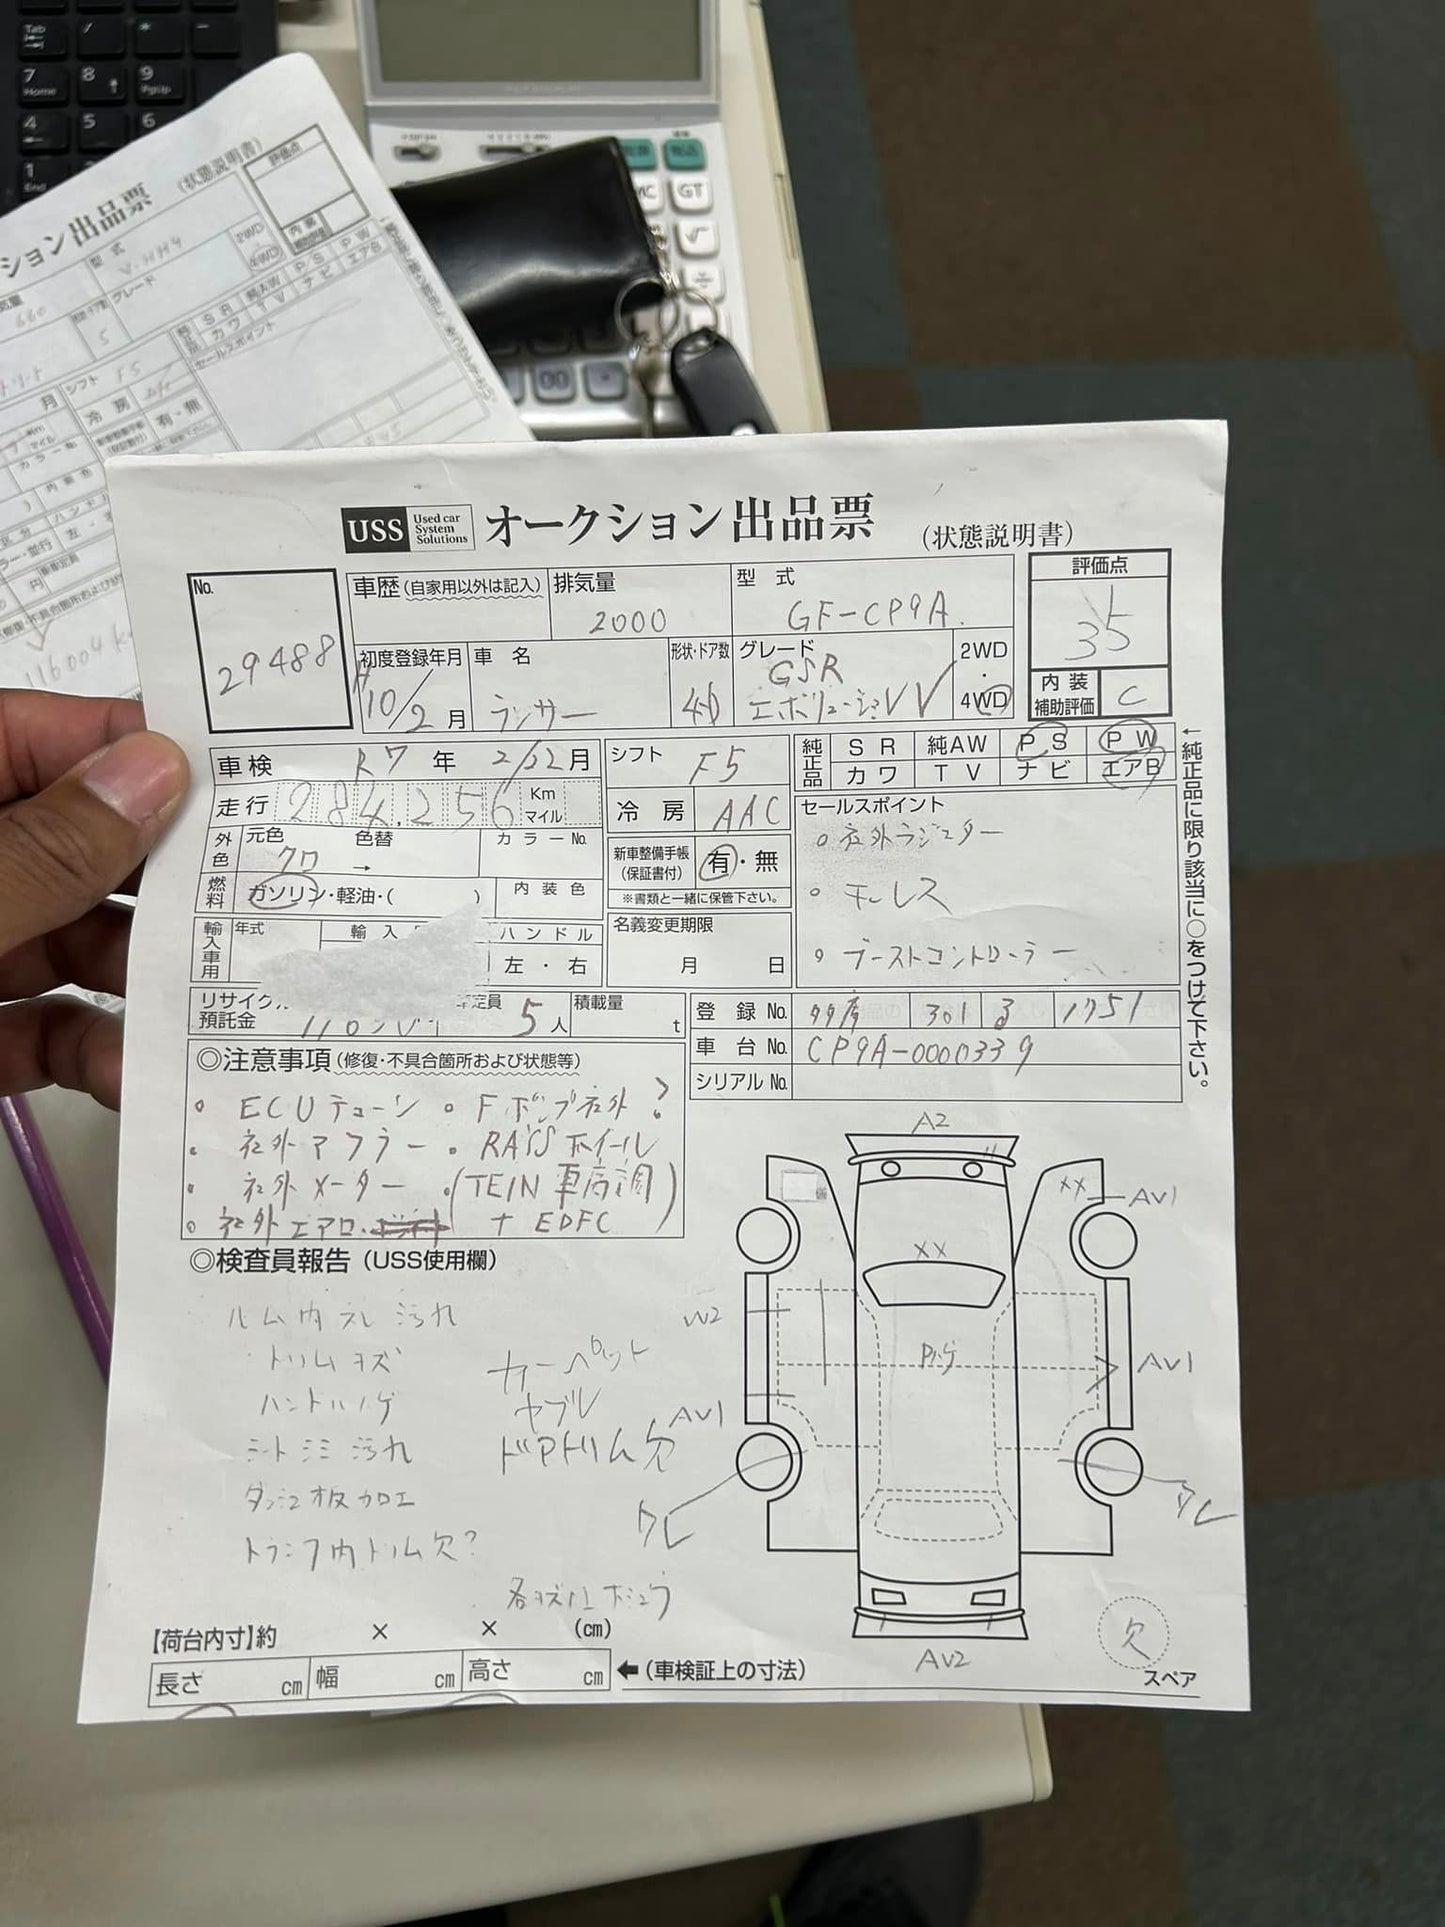 USS Used car System Solutions オークション出品票 (状態説明書)
No. 29488
車歴 (自家用以外は記入)
排気量 2000
型 式 GF-CP9A
評価点 35
初度登録年月 H10/2月
車 名 ランサー
形状・ドア数 4D
グレード GSR エボリューションVV
2WD・4WD
内装補助評価 C
車検 R7年 2/22月
シフト F5
純正品 SR 純AW PS PW
カワ TV ナビ エアB
走行 284,256 Km マイル
冷 房 AAC
セールスポイント
外色 元色 クロ → 色替 カラーNo.
社外ラジエター
新車整備手帳(保証書付) 有・無
※書類と一緒に保管下さい。
燃料 ガソリン・軽油・( ) 内装色
キーレス
輸入車用 年式 輸入 ハンドル 左・右
名義変更期限 月 日
ブーストコントローラー
←純正品に限り該当に○をつけて下さい。
リサイクル預託金
定員 5人 積載量 t
登 録 No. 301 る 1751
車 台 No. CP9A-0000339
シリアル No.
◎注意事項(修復・不具合箇所および状態等)
ECUチューン Fポンプ社外?
社外マフラー RAYSホイール
社外メーター (TEIN車高調
社外エアロ + EDFC)
◎検査員報告(USS使用欄)
ルーム内スレ汚れ
トリムキズ カーペット
ハンドルハゲ ヤブレ
シートシミ汚れ ドアトリム欠
ダッシュ板加工
トランク内トリム欠?
A2
XX AV1
XX
W2
Pハゲ
AV1
AV1
クレ
クレ
AV2
欠
スペア
【荷台内寸】約 × × (cm)
長さ cm 幅 cm 高さ cm ←(車検証上の寸法)
オークション出品票 (状態説明書)
評価点
型 式 V-HH4
2WD 4WD
内装補助評価
660
5
グレード
SR 純AW PS PW
カワ TV ナビ エアB
セールスポイント
シフト F5
冷 房
有・無
カラーNo.
116004k
Tab
7 Home
8
9 PgUp
4
5
6
1 End
GT
√
÷
00